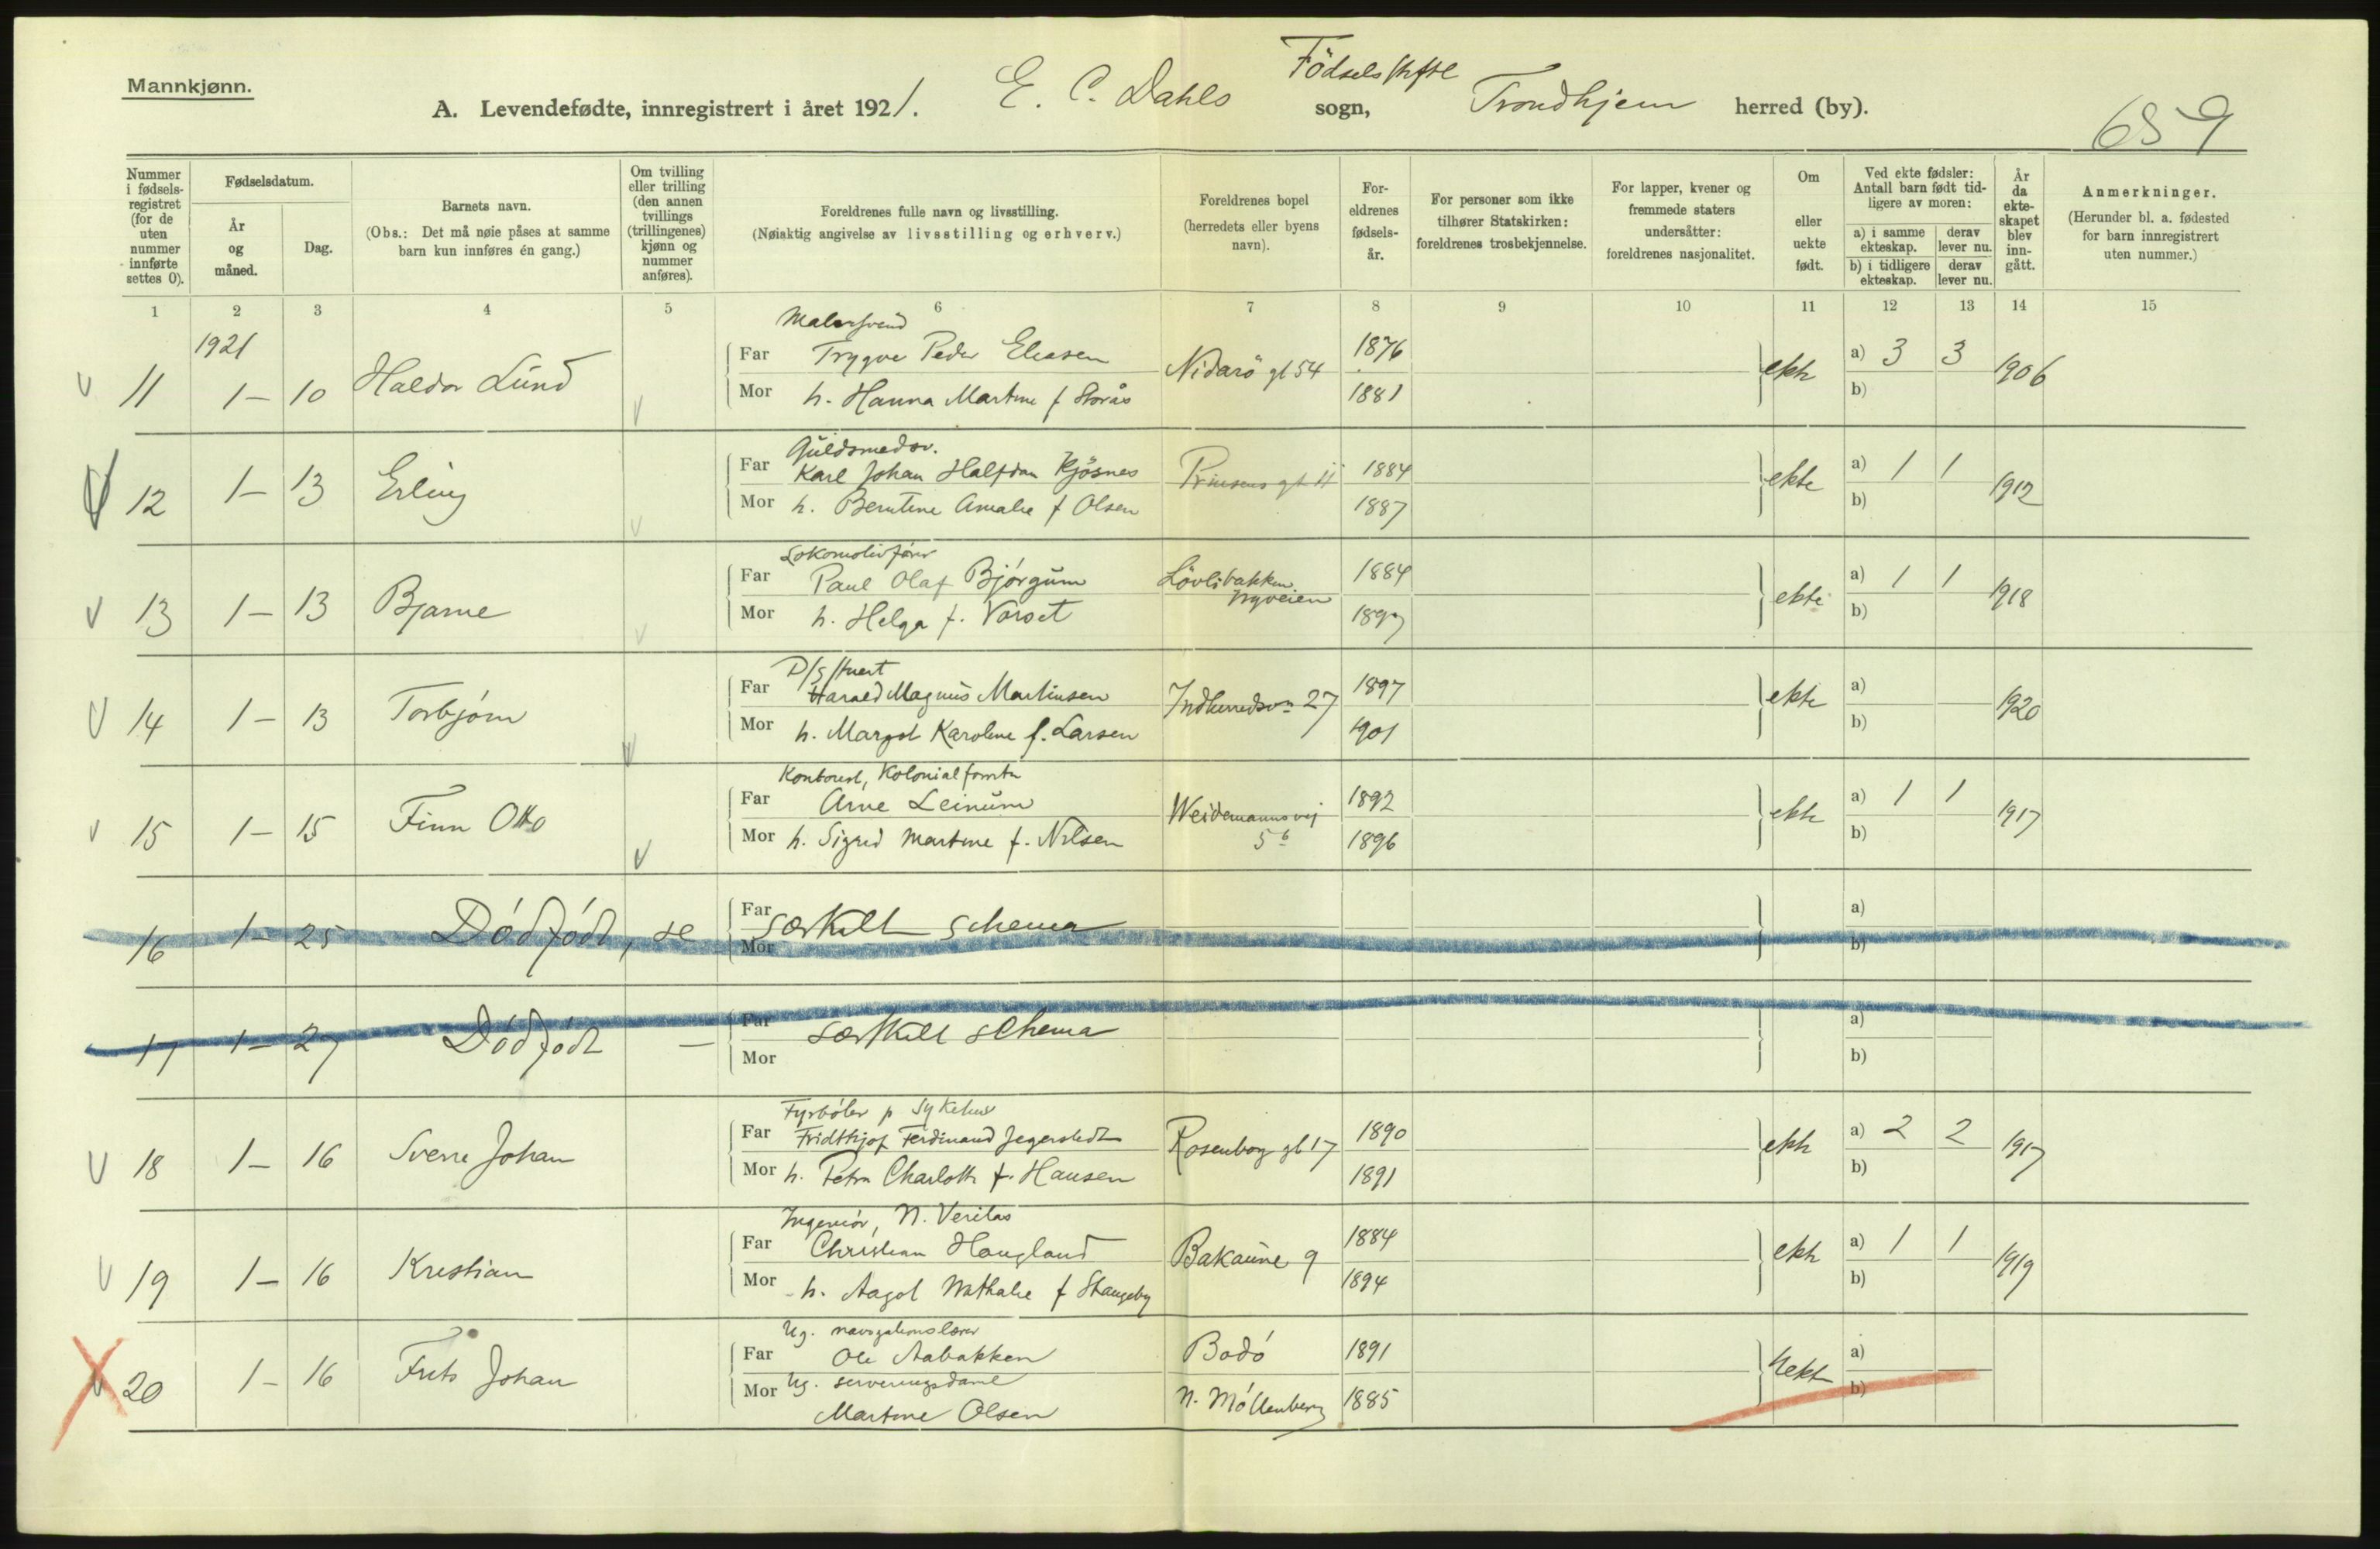 Mannkjønn.
A. Levendefødte, innregistrert i året 1921. E. C. Dahls Födselsstiftelse sogn, Trondhjem herred (by).
659
Nummer i fødsels-registret (for de uten nummer innførte settes 0).
Fødselsdatum.
År og måned.
Dag.
Barnets navn.
(Obs.: Det må nøie påses at samme barn kun innføres én gang.)
Om tvilling eller trilling (den annen tvillings (trillingenes) kjønn og nummer anføres).
Foreldrenes fulle navn og livsstilling.
(Nøiaktig angivelse av livsstilling og erhverv.)
Foreldrenes bopel
(herredets eller byens navn).
For-eldrenes fødsels-år.
For personer som ikke tilhører Statskirken: foreldrenes trosbekjennelse.
For lapper, kvener og fremmede staters undersåtter: foreldrenes nasjonalitet.
Om eller uekte født.
Ved ekte fødsler: Antall barn født tid-ligere av moren:
a) i samme ekteskap.
derav lever nu.
b) i tidligere ekteskap.
derav lever nu.
År da ekte-skapet blev inn-gått.
Anmerkninger.
(Herunder bl. a. fødested for barn innregistrert uten nummer.)
1 2 3 4 5 6 7 8 9 10 11 12 13 14 15
1921
Malersvend
11 1- 10 Haldor Lund Far Trygve Peder Eliasen Nidarö gt 54 1876 ekte a) 3 3 1906
Mor h. Hanna Martine f Storås 1881 b)
Guldsmedsv.
12 1- 13 Erling Far Karl Johan Halfdan Kjösnes Prinsens gt 11 1884 ekte a) 1 1 1912
Mor h. Berntine Amalie f Olsen 1887 b)
Lokomotivfører
13 1- 13 Bjarne Far Paul Olaf Bjørgum Lövlibakken Nyveien 1884 ekte a) 1 1 1918
Mor h. Helga f. Vorset 1897 b)
D/S stuert
14 1- 13 Torbjørn Far Harald Magnus Martinsen Indherredsvn 27 1897 ekte a) 1920
Mor h. Margot Karoline f. Larsen 1901 b)
Kontorist, Kolonialforretn
15 1- 15 Finn Otto Far Arne Leinum Weidemannsvej 5b 1892 ekte a) 1 1 1917
Mor h. Sigrid Martine f. Nilsen 1896 b)
16 1- 25 Dödfödt, se Far særskilt schema a)
Mor b)
17 1- 27 Dödfödt — Far særskilt schema a)
Mor b)
Fyrböter p Sykehus
18 1- 16 Sverre Johan Far Fridthjof Ferdinand Jegerstedt Rosenborg gt 17 1890 ekte a) 2 2 1917
Mor h. Petra Charlotte f. Hansen 1891 b)
Ingeniör, N. Veritas
19 1- 16 Kristian Far Christian Haugland Bakaune 9 1884 ekte a) 1 1 1919
Mor h. Aagot Nathalie f Stangeby 1894 b)
Ug. navigationslærer
20 1- 16 Frits Johan Far Ole Aabakken Bodö 1891 Uekte a)
Mor Ug. serveringsdame
Martine Olsen N. Möllenberg 1885 b)